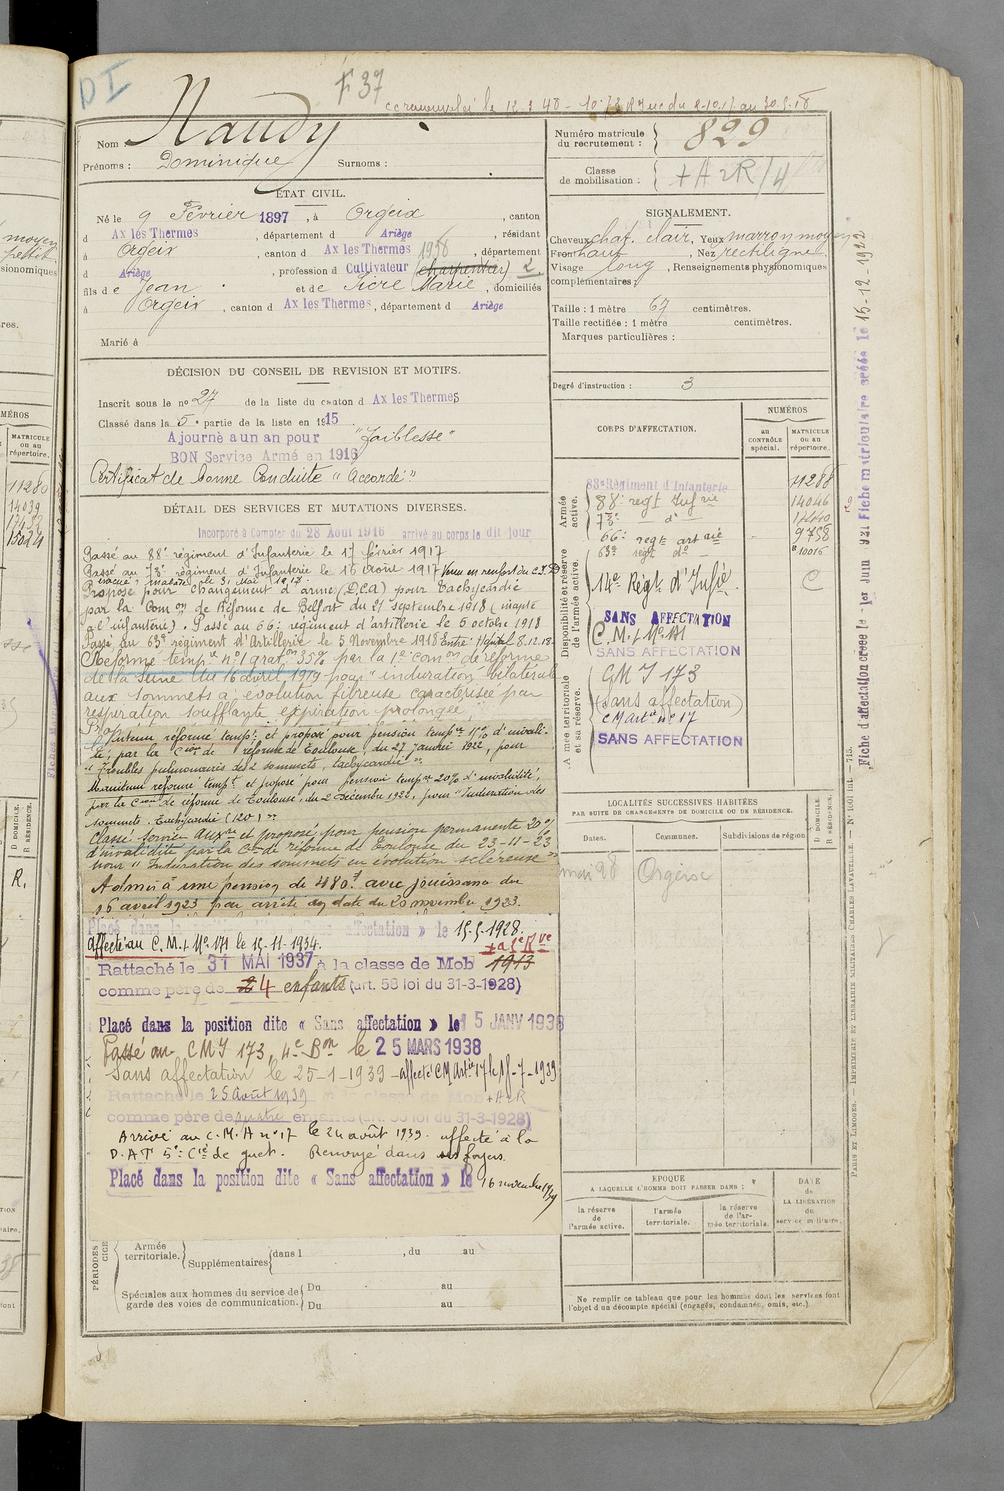 D I
F 37
Nom : Naudy
Prénoms : Dominique Surnoms :
Numéro matricule du recrutement : 829
Classe de mobilisation : + A 2R / 4
ÉTAT CIVIL.
Né le 9 Février 1897, à Orgeix, canton
d Ax les Thermes, département d Ariège, résidant
à Orgeix, canton d Ax les Thermes 1936, département
d Ariège, profession d Cultivateur (charpentier) 2
fils de Jean et de Sicre Marie, domiciliés
à Orgeix, canton d Ax les Thermes, département d Ariège
Marié à
SIGNALEMENT.
Cheveux chat. clair, Yeux marron moyen
Front haut, Nez rectiligne,
Visage long, Renseignements physionomiques
complémentaires :
Taille : 1 mètre 67 centimètres.
Taille rectifiée : 1 mètre centimètres.
Marques particulières :
Degré d'instruction : 3
DÉCISION DU CONSEIL DE REVISION ET MOTIFS.
Inscrit sous le n° 27 de la liste du canton d Ax les Thermes
Classé dans la 5e partie de la liste en 1915
Ajourné a un an pour "Faiblesse"
BON Service Armé en 1916
Certificat de bonne Conduite "Accordé"
DÉTAIL DES SERVICES ET MUTATIONS DIVERSES.
Incorporé à Compter du 28 Août 1916 arrivé au corps le dit jour
Passé au 88e régiment d'Infanterie le 17 février 1917
Passé au 73e régiment d'Infanterie le 16 août 1917
Proposé pour changement d'arme (DCA) pour Tachycardie
par la Comon de Réforme de Belfort du 21 septembre 1918 (inapte
à l'infanterie). Passé au 66e régiment d'artillerie le 6 octobre 1918
Passé au 63e régiment d'Artillerie le 5 Novembre 1918 Entré Hôpital 8.12.18
Réformé tempre n° 1 graton 35% par la 1e comon de réforme
de la Seine du 16 avril 1919 pour "induration bilatérale
aux sommets à évolution fibreuse caractérisée par
respiration soufflante expiration prolongée"
Maintenu réformé tempre et proposé pour pension tempre
par la Cion de réforme de Toulouse, du 27 Janvier 1922, pour
"Troubles pulmonaires des 2 sommets, tachycardie".
Maintenu réformé tempt et proposé pour pension tempre 20% d'invalidité,
par la Cion de réforme de Toulouse, du 2 Décembre 1922, pour "Induration des
sommets. Tachycardie (120)".
Classé service auxre et proposé pour pension permanente 20%
d'invalidité par la Cion de réforme de Toulouse du 23-11-23
pour "Induration des sommets en évolution scléreuse"
Admis à une pension de 480f avec jouissance du
16 avril 1923 par arrêté en date du 20 novembre 1923.
Placé dans la position dite « Sans affectation » le 15-5-1928.
Affecté au C.M.I. No 171 le 15-11-1934.
+ a 1e Rve
Rattaché le 31 MAI 1937 à la classe de Mob 1913
comme père de 4 enfants (art. 58 loi du 31-3-1928)
Placé dans la position dite « Sans affectation » le 15 JANV 1938
Passé au CMI 173, 4e Bon le 25 MARS 1938
Sans affectation le 25-1-1939 - affecté CM Artie 17 le 15-7-1939
Rattaché le 25 août 1939 à la classe de Mob + A 2R
comme père de quatre enfants (art. 58 loi du 31-3-1928)
Arrivé au C.M.A n° 17 le 24 août 1939. affecté à la
D.A.T 5e Cie de guet. Renvoyé dans ses foyers.
Placé dans la position dite « Sans affectation » le 16 novembre 1939
PÉRIODES
Armée territoriale.
Supplémentaires dans l , du au
Spéciales aux hommes du service de garde des voies de communication.
Du au
Du au
CORPS D'AFFECTATION.
NUMÉROS
au CONTRÔLE spécial.
MATRICULE ou au répertoire.
Armée active.
88e Régiment d'Infanterie 11286
88e regt Infrie 14046
73e do 17440
66e regt artrie 9758
63e regt do 10016
Disponibilité et réserve de l'armée active.
14e Régt d'Infie C
SANS AFFECTATION
C.M.I No 171
SANS AFFECTATION
Armée territoriale et sa réserve.
CMI 173
(sans affectation)
CM Artie n° 17
SANS AFFECTATION
LOCALITÉS SUCCESSIVES HABITÉES
PAR SUITE DE CHANGEMENTS DE DOMICILE OU DE RÉSIDENCE.
Dates. Communes. Subdivisions de région
D DOMICILE.
R RÉSIDENCE.
mai 28 Orgeix
ÉPOQUE
A LAQUELLE L'HOMME DOIT PASSER DANS :
la réserve de l'armée active.
l'armée territoriale.
la réserve de l'armée territoriale.
DATE de LA LIBÉRATION du service militaire.
Ne remplir ce tableau que pour les hommes dont les services font
l'objet d'un décompte spécial (engagés, condamnés, omis, etc.).
Fiche d'affectation créée le 1er Juin 1921 Fiche matriculaire créée le 15-12-1922
PARIS ET LIMOGES. — IMPRIMERIE ET LIBRAIRIE MILITAIRES CHARLES LAVAUZELLE. — N° 1001 Int. — 713.